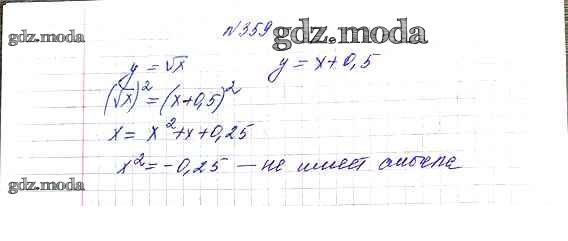 gdz.moda
№359
gdz.moda
y = √x y = x+0,5
(√x)² = (x+0,5)²
x = x²+x+0,25
x² = -0,25 — не имеет смысла
gdz.moda